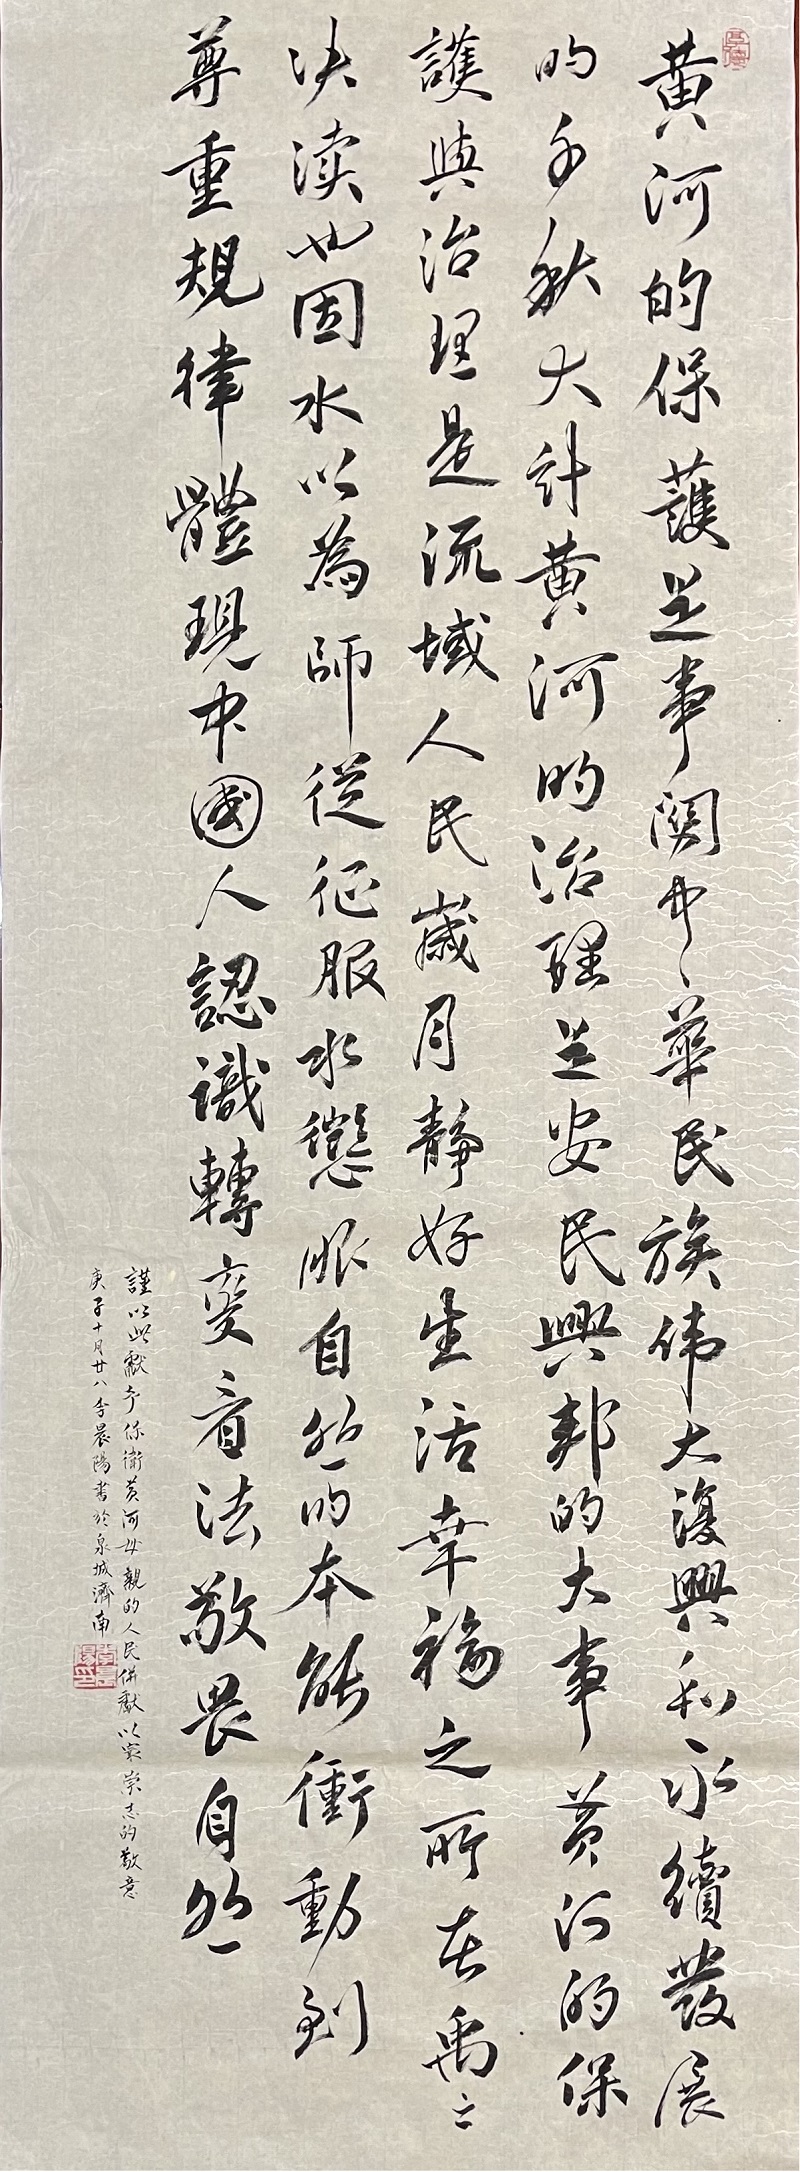 黃河的保護是事關中華民族伟大復興和永續發展
的千秋大計黃河的治理是安民興邦的大事黃河的保
護與治理是流域人民歲月靜好生活幸福之所在禹之
决渎也因水以為師從征服水懲服自然的本能衝動到
尊重規律體現中國人認識轉变看法敬畏自然
謹以此獻予保衛黃河母親的人民併獻以崇志的敬意
庚子十月廿八李晨陽書於泉城濟南